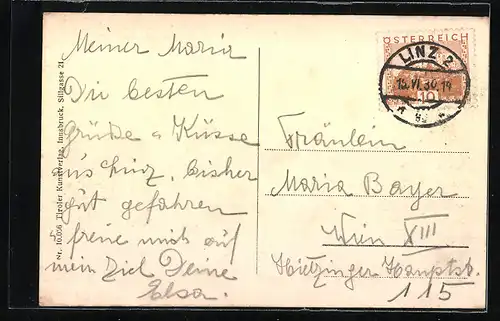 Meiner Maria
Die besten
Grüße u Küsse
aus Linz, bisher
gut gefahren
freue mich auf
mein Ziel Deine
Elsa.
Nr. 10.056 Tiroler Kunstverlag, Innsbruck, Sillgasse 21
ÖSTERREICH
LINZ 2
15.VI.30.14
10
Fräulein
Maria Bayer
Wien XIII
Hietzinger Hauptstr.
115